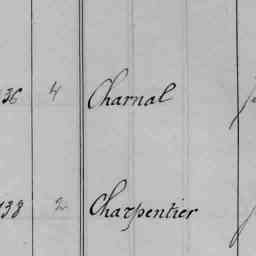 36 4 Charnal
138 2 Charpentier